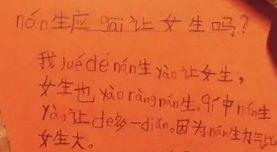 nán生应gāi让女生吗?
我jué dé nán生yào让女生,
女生也yào ràng nán生。中nán生
yào让de多一diǎn。因为nán生力比
女生大。